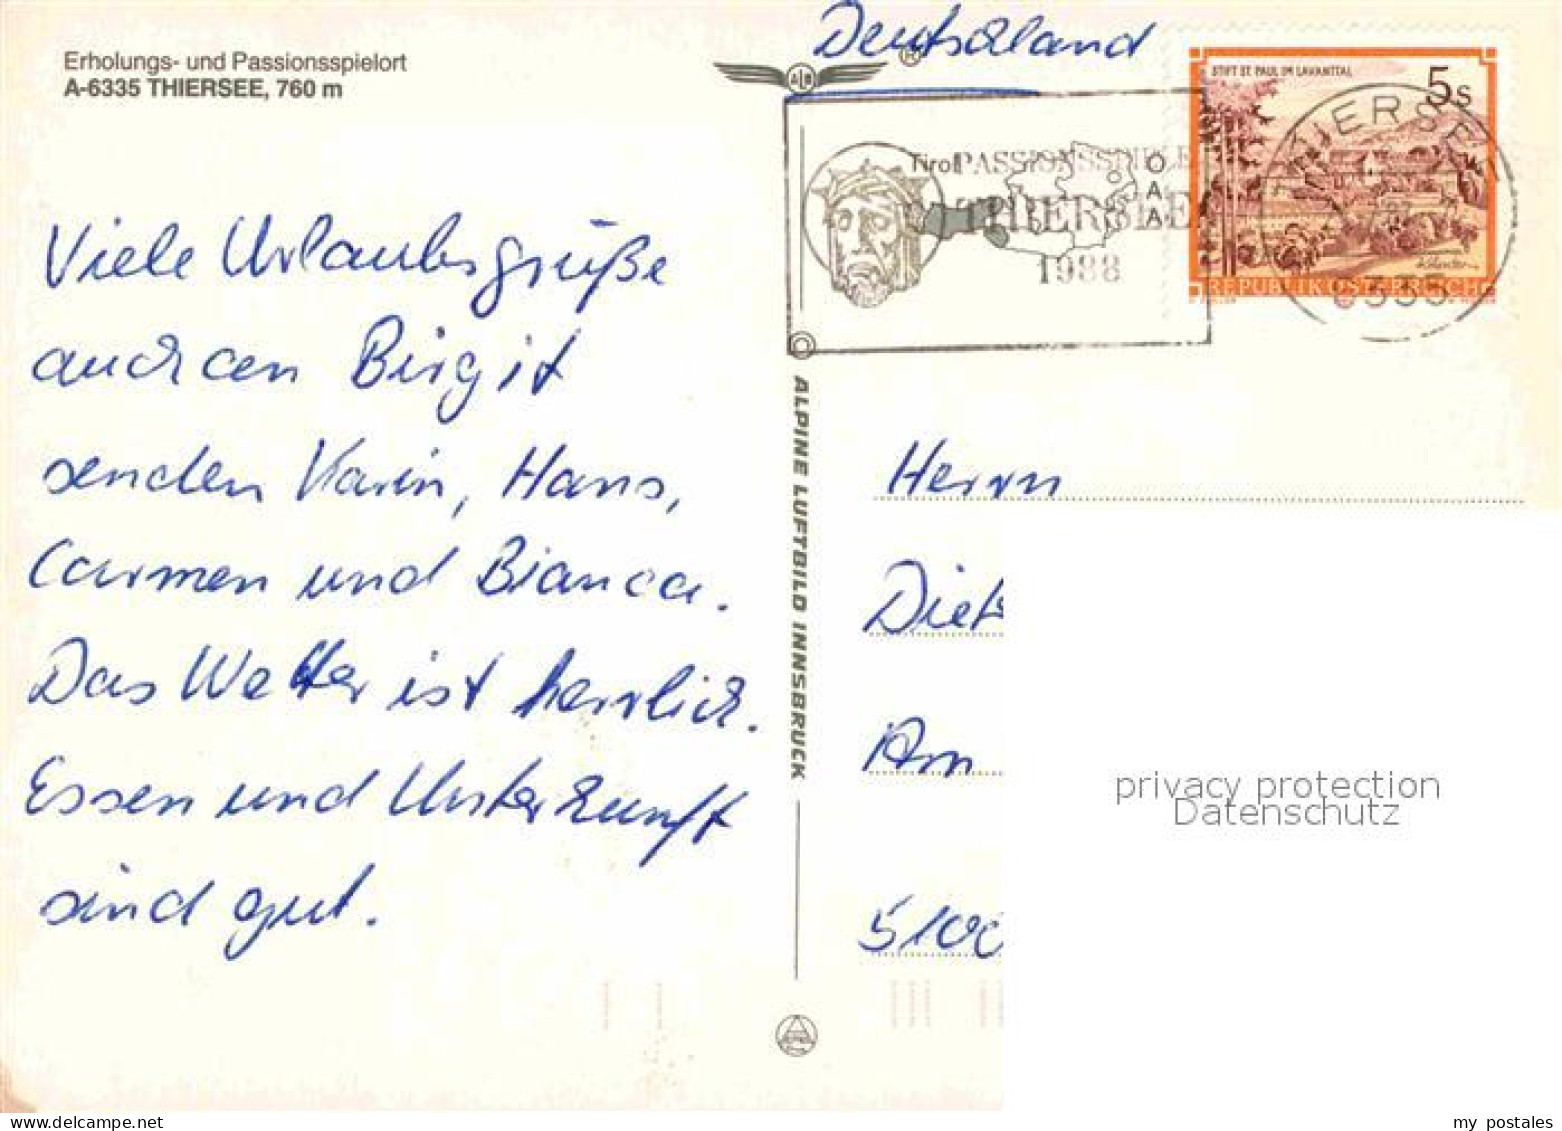 Erholungs- und Passionsspielort
A-6335 THIERSEE, 760 m
Viele Urlaubsgrüße
auch an Birgit
senden Karin, Hans,
Carmen und Bianca.
Das Wetter ist herrlich.
Essen und Unterkunft
sind gut.
ALPINE LUFTBILD INNSBRUCK
Deutschland
Tirol PASSIONSSPIELE
THIERSEE
1988
STIFT ST. PAUL IM LAVANTTAL
5s
REPUBLIK ÖSTERREICH
THIERSEE
6335
Herrn
Diet
Am
5100
privacy protection
Datenschutz
my postales